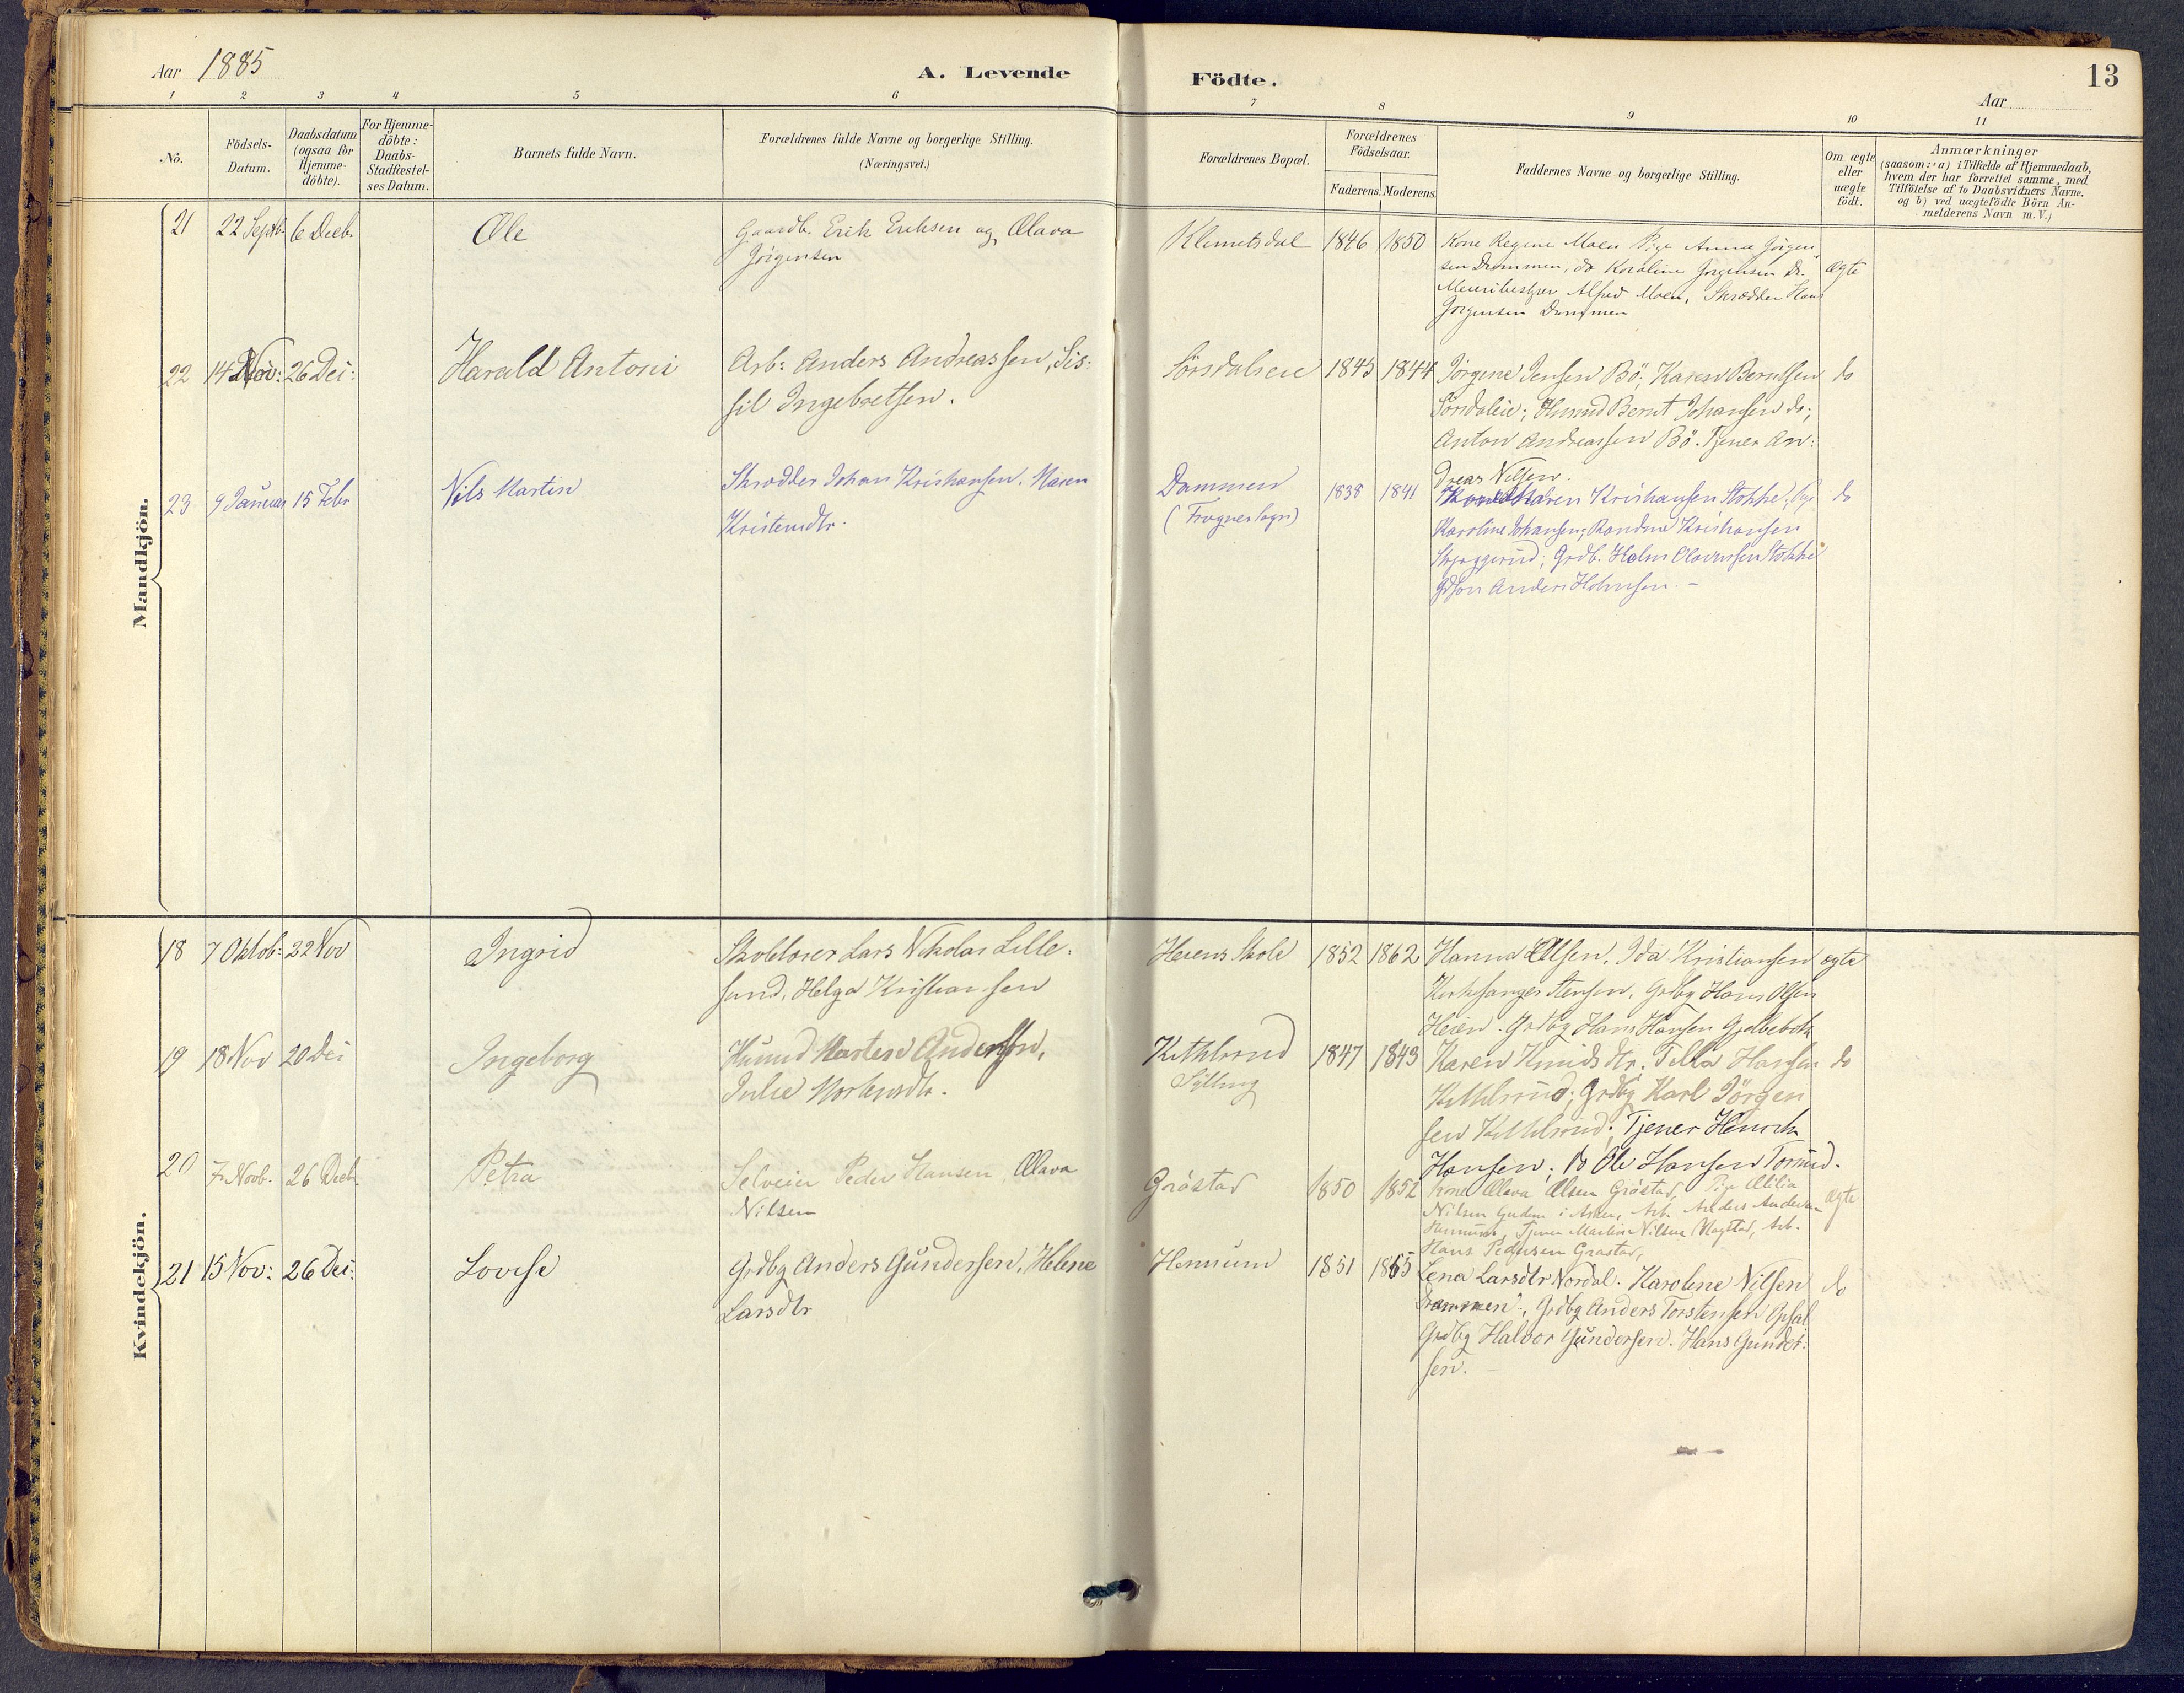 Aar 1885
A. Levende Födte.
13
Aar
1 2 3 4 5 6 7 8 9 10 11
Nö.
Födsels-Datum.
Daabsdatum (ogsaa for Hjemme-döbte).
For Hjemme-döbte: Daabs-Stadfæstel-ses Datum.
Barnets fulde Navn.
Forældrenes fulde Navne og borgerlige Stilling.
(Næringsvei.)
Forældrenes Bopæl.
Forældrenes Födselsaar.
Faderens. Moderens.
Faddernes Navne og borgerlige Stilling.
Om ægte eller uægte födt.
Anmærkninger
(saasom: a) i Tilfælde af Hjemmedaab,
hvem der har forrettet samme, med
Tilföielse af to Daabsvidners Navne,
og b) ved uægtefödte Börn An-
melderens Navn m. V.)
Mandkjön.
21 22 Septb. 6 Decb. Ole
Gaardb. Erik Eriksen og Olava
Jörgensen
Klemetsdal 1846 1850
Kone Regine Moen Pige Anna Jörgen
sen Drammen, do Karoline Jörgensen Dr.
Meieribestyrer Alfred Moen, Skrædder Hans
Jörgensen Drammen
Ægte
22 14 Nov: 26 Dei: Harald Antoni
Arb: Anders Andreassen, Sis:
sil Ingebretsen.
Sörsdaleie 1845 1844
Jörgine Jensen Bö; Karen Berntsen
Sörsdaleie; Bernt Johansen do;
Anton Andreassen Bö. Tjener An:
dreas Nilsen.
do
23 9 Januar 15 Febr Nils Martin
Skrædder Johan Kristiansen. Maren
Kristensdtr.
Dammen
(Frogner sogn)
1838 1841
Maren Kristiansen Stokke; Pige
Karoline Johansen; Randine Kristiansen
Skjeggerud; Grdb. Holm Olavessen Stokke
Gdson Anders Holmsen. -
do
Kvindekjön.
18 7 Oktob: 22 Nov Ingrid
Skolelærer Lars Nikolai Lille:
sund, Helga Kristiansen
Heiens Skole 1852 1862
Hanna Olsen, Ida Kristiansen
Kirkesanger Stensen, Grdbg Hans Olsen
Heien. Grdbg Hans Hansen Gjellebek
ægte
19 18 Nov 20 Dei Ingeborg
Husmd Martin Andersen,
Julie Mortensdtr.
Kittilsrud
Sylling
1847 1843
Karen Knudsdtr. Tilla Hansen
Kittilsrud; Grdbg Karl Jörgen
sen Kittilsrud; Tjener Henrik
Hansen; do Ole Hansen Torrud.
do
20 7 Novb. 26 Decb. Petra
Selveier Peder Hansen, Olava
Nilsen
Gröstad 1850 1852
Kone Olava Olsen Gröstad, Pige Otilia
Nilsen Gudem i Asker, Arb. Anders Andersen
Hennum, Tjener Martin Nilsen Vlagstad, Arb.
Hans Pedersen Grøstad,
Ægte
21 15 Nov: 26 Dei: Lovise
Grdbg Anders Gundersen, Helene
Larsdtr
Hennum 1851 1855
Lena Larsdtr Nordal. Karolene Nilsen
Drammen, Grdbg Anders Torstensen Opsal
Grdbg Halvor Gundersen. Hans Gunder:
sen. -
do